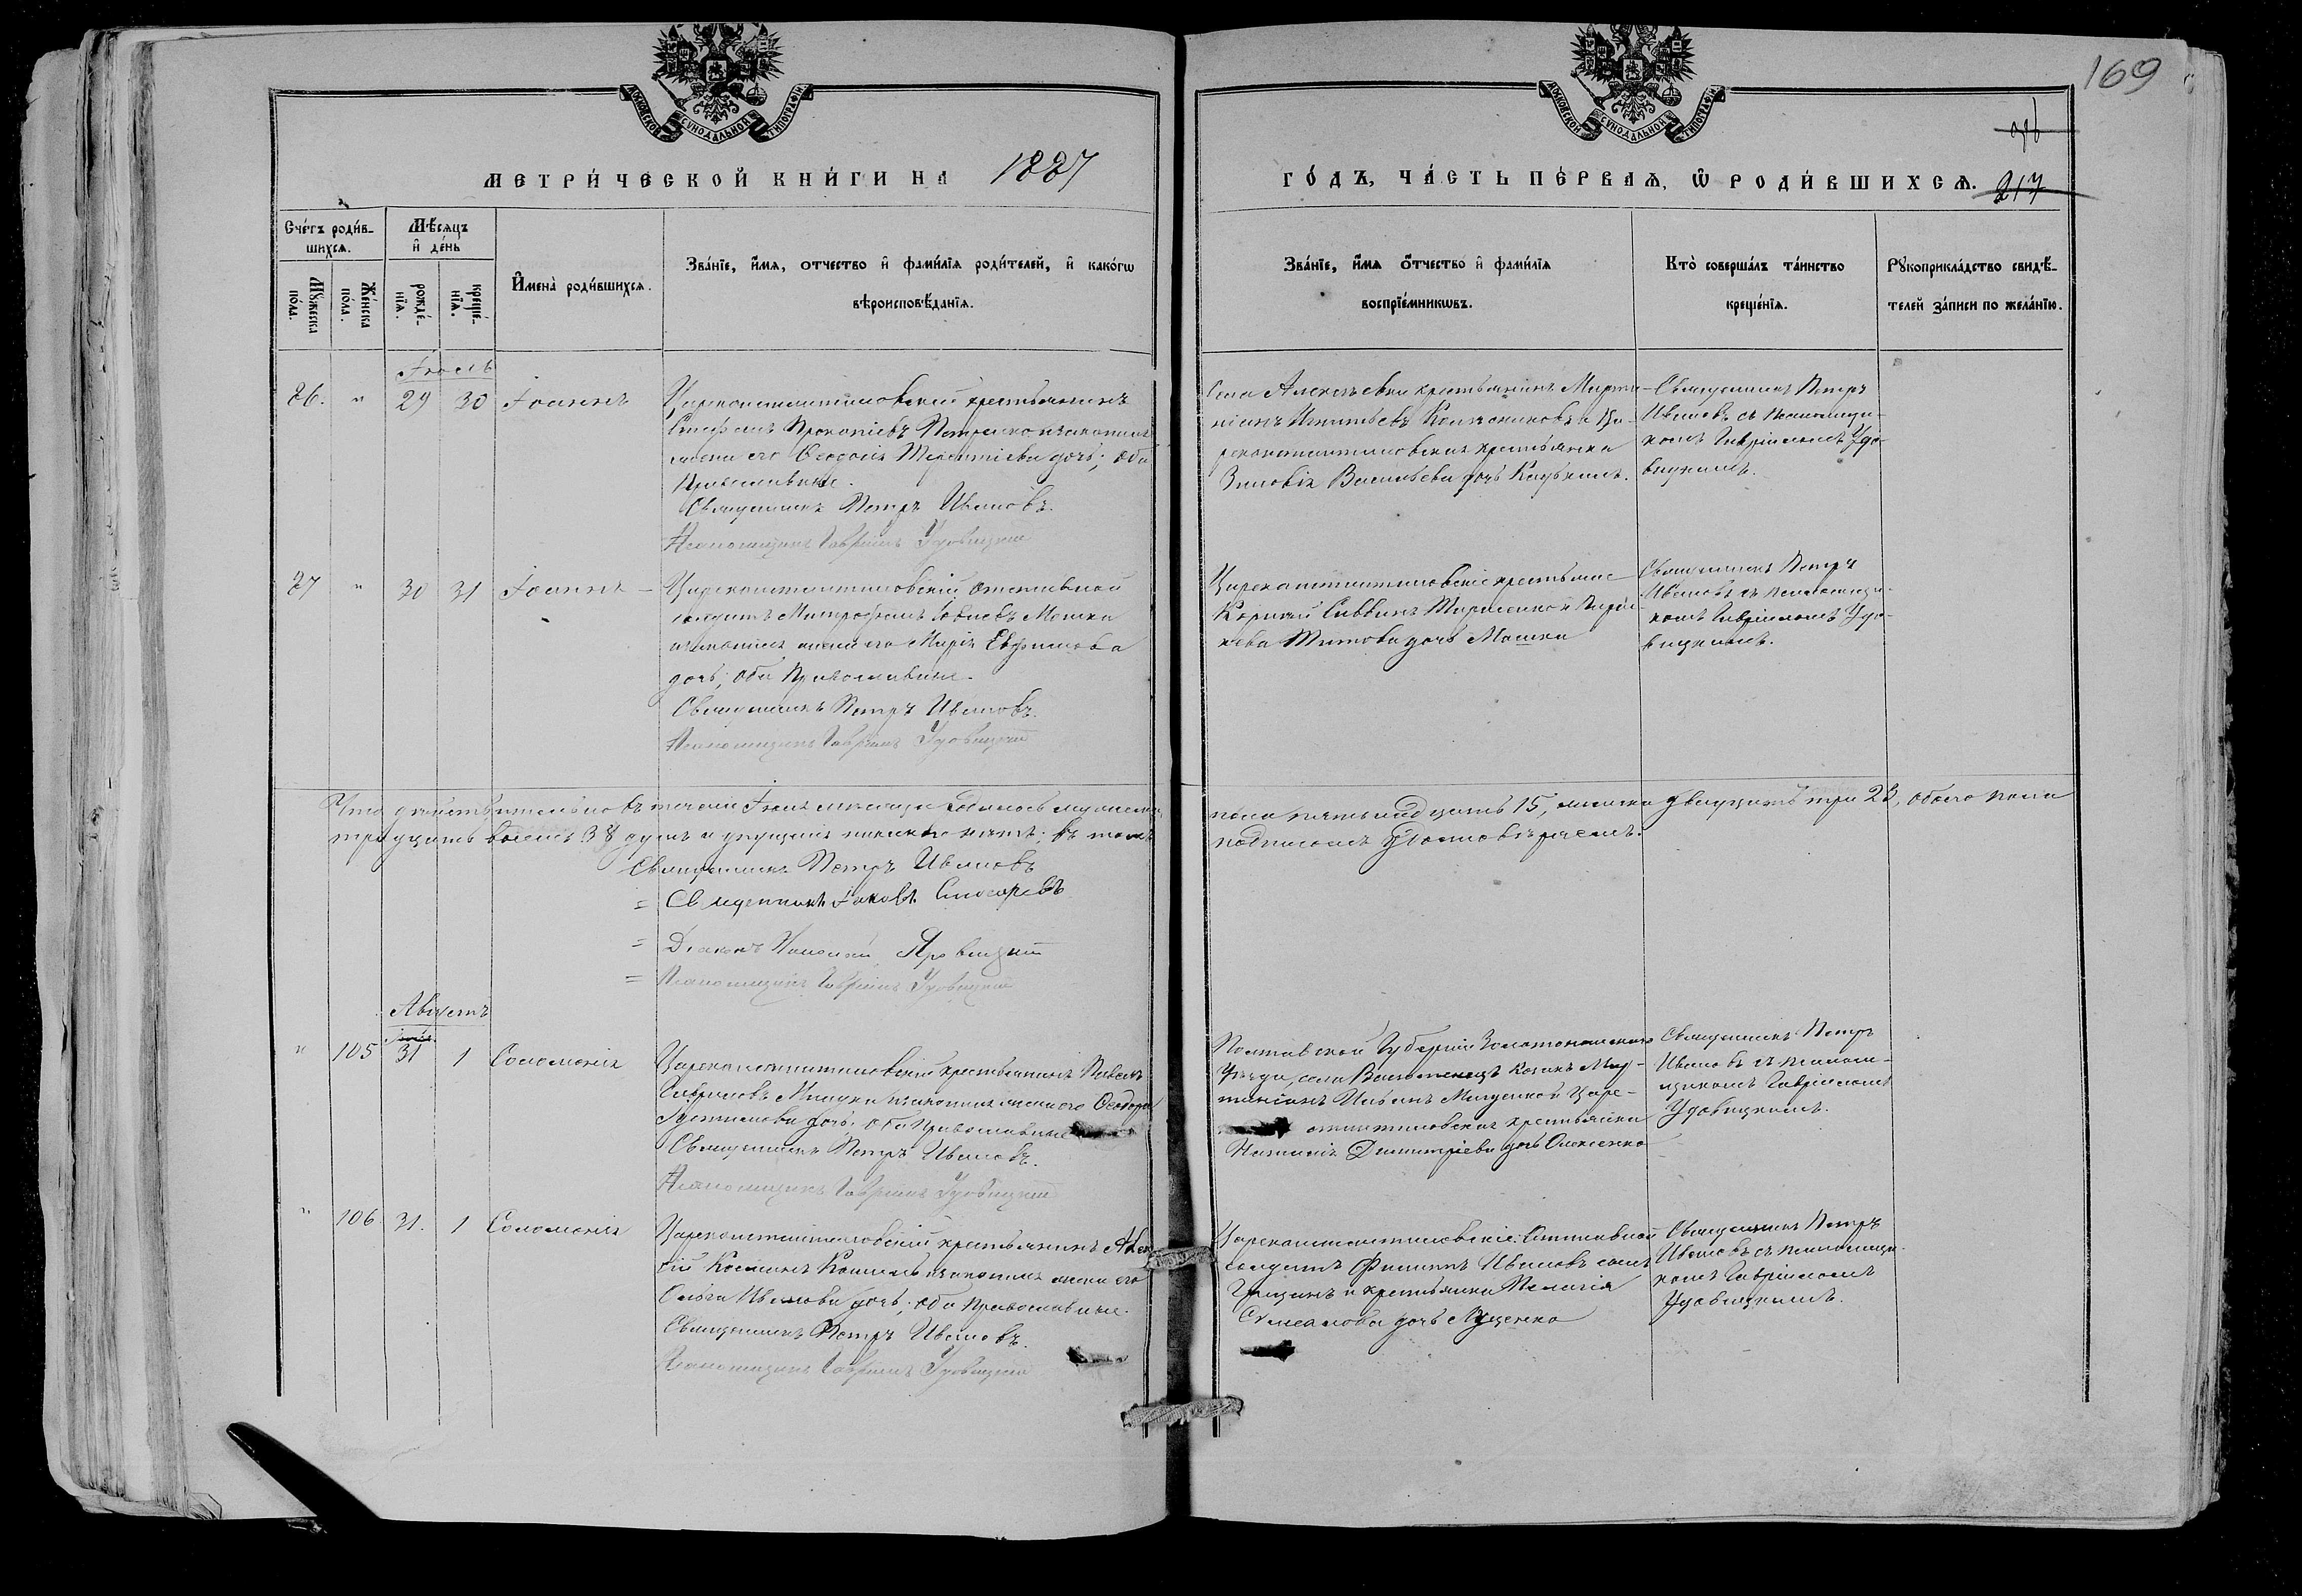 169
МОСКОВСКОЙ СѴНОДАЛЬНОЙ ТИПОГРАФІИ
МОСКОВСКОЙ СѴНОДАЛЬНОЙ ТИПОГРАФІИ
МЕТРИ́ЧЕСКОЙ КНИ́ГИ НА 1887
ГО́ДЪ, ЧА́СТЬ ПЕ́РВАЯ, Ѡ РОДИ́ВШИХСЯ. 217
Сче́тъ роди́в-
шихся.
Мѣ́сяцъ
и҆ де́нь
Мꙋ́жеска
по́ла.
Же́нска
по́ла.
рожде́-
нїя.
креще́-
нїя.
И҆мена̀ роди́вшихся.
Зва́нїе, и҆́мя, о́тчество и҆ фами́лїя роди́телей, и҆ како́гѡ
вѣроисповѣ́данїя.
Зва́нїе, и҆́мя о́тчество и҆ фами́лїя
воспрїе́мникѡвъ.
Кто̀ соверша́лъ та́инство
креще́нїя.
Рꙋкоприкла́дство свидѣ́-
телей за́писи по жела́нїю.
Іюль
86. " 29 30 Іоаннъ
Цареконстантиновскій крестьянинъ
Стефанъ Прокопіевъ Петренко и законная
жена его Ѳеодосія Терентіева дочь; оба
Православные.
Священникъ Петръ Ивановъ.
Псаломщикъ Гавріилъ Удовицкій
Села Алексѣевки крестьянинъ
Игнатьевъ и Ца-
реконстантиновская крестьянка
Зиновія Васильева дочь
Священникъ Петръ
Ивановъ съ псаломщи-
комъ Гавріиломъ Удо-
вицкимъ.
87 " 30 31 Іоаннъ
Цареконстантиновскій отставной
солдатъ Митрофанъ Мошка
и законная жена его Марія Евфимова
дочь; оба Православные.
Священникъ Петръ Ивановъ.
Псаломщикъ Гавріилъ Удовицкій
Цареконстантиновскіе крестьяне
Корнилій Саввинъ и
Титова дочь Мошка
Священникъ Петръ
Ивановъ съ псаломщи-
комъ Гавріиломъ Удо-
вицкимъ.
Что дѣйствительно въ теченіи Іюля мѣсяца родилось мужеска
пола пятьнадцать 15, женска двадцать три 23, обоего пола
тридцать восемь 38 душъ и упущенія никакого нѣтъ; въ томъ
подписомъ удостовѣряемъ.
Священникъ Петръ Ивановъ
= Священникъ Іаковъ
= Діаконъ Яровицкій
= Псаломщикъ Гавріилъ Удовицкій
Августъ
" 105 31 1 Соломонія
Цареконстантиновскій крестьянинъ Павелъ
Гавриловъ и законная жена его Ѳеодора
дочь; оба Православные
Священникъ Петръ Ивановъ.
Псаломщикъ Гавріилъ Удовицкій
Полтавской Губерніи Золотоношскаго
Уѣзда, села козакъ Мар-
тиніанъ и Царе-
онстантиновская крестьянка
Димитріева дочь Олексенко
Священникъ Петръ
Ивановъ съ псалом-
щикомъ Гавріиломъ
Удовицкимъ.
" 106 31. 1 Соломонія
Цареконстантиновскій крестьянинъ
Косминъ и законная жена его
Ольга Иванова дочь; оба Православные.
Священникъ Петръ Ивановъ.
Псаломщикъ Гавріилъ Удовицкій
Цареконстантиновскіе: Отставной
солдатъ Филиппъ Ивановъ сынъ
и крестьянка Пелагія
дочь Луценко
Священникъ Петръ
Ивановъ съ псаломщи-
комъ Гавріиломъ
Удовицкимъ.